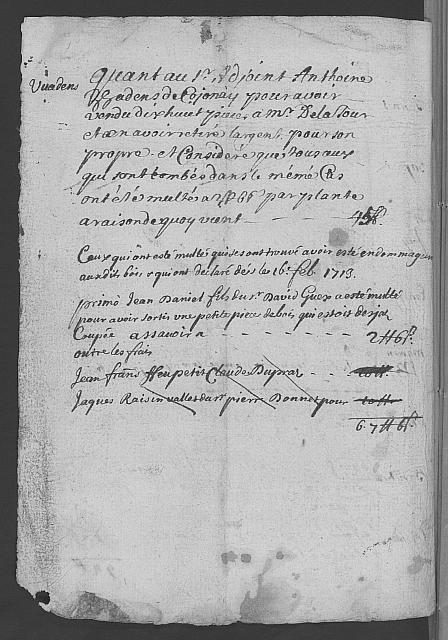 Vuadens
Quant au Sr. Adjoint Anthoine
Vuadens de Cojonay pour avoir
vendu dix huict pieces a Mr. Delatour
et en avoir retiré largent, pour son
propre. et Consideré que tous aux
qui sont tombés dans le même Cas
ont été multés a par plante
a raison de quoy vient 45 ff.
Ceux qui ont esté multé qui se sont trouvé avoir esté endommagin
aux dits bois & qui ont declaré dès le 16e. feb. 1713.
primò Jean Daniel fils du Sr. David Guex a esté multé
pour avoir sortis une petite piece de bois qui estoit desja
Coupée a Stuff 6 f.
outre les frais
Jean frans ffeu petit Claude Dupraz
Jaques Raisin vallet du Sr. pierre Donnet pour
67 ff 6 f.